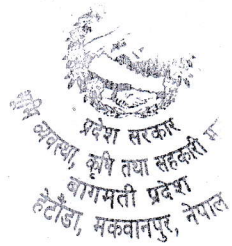 प्रदेश सरकार
भूमि व्यवस्था, कृषि तथा सहकारी म
बागमती प्रदेश
हेटौंडा, मकवानपुर, नेपाल